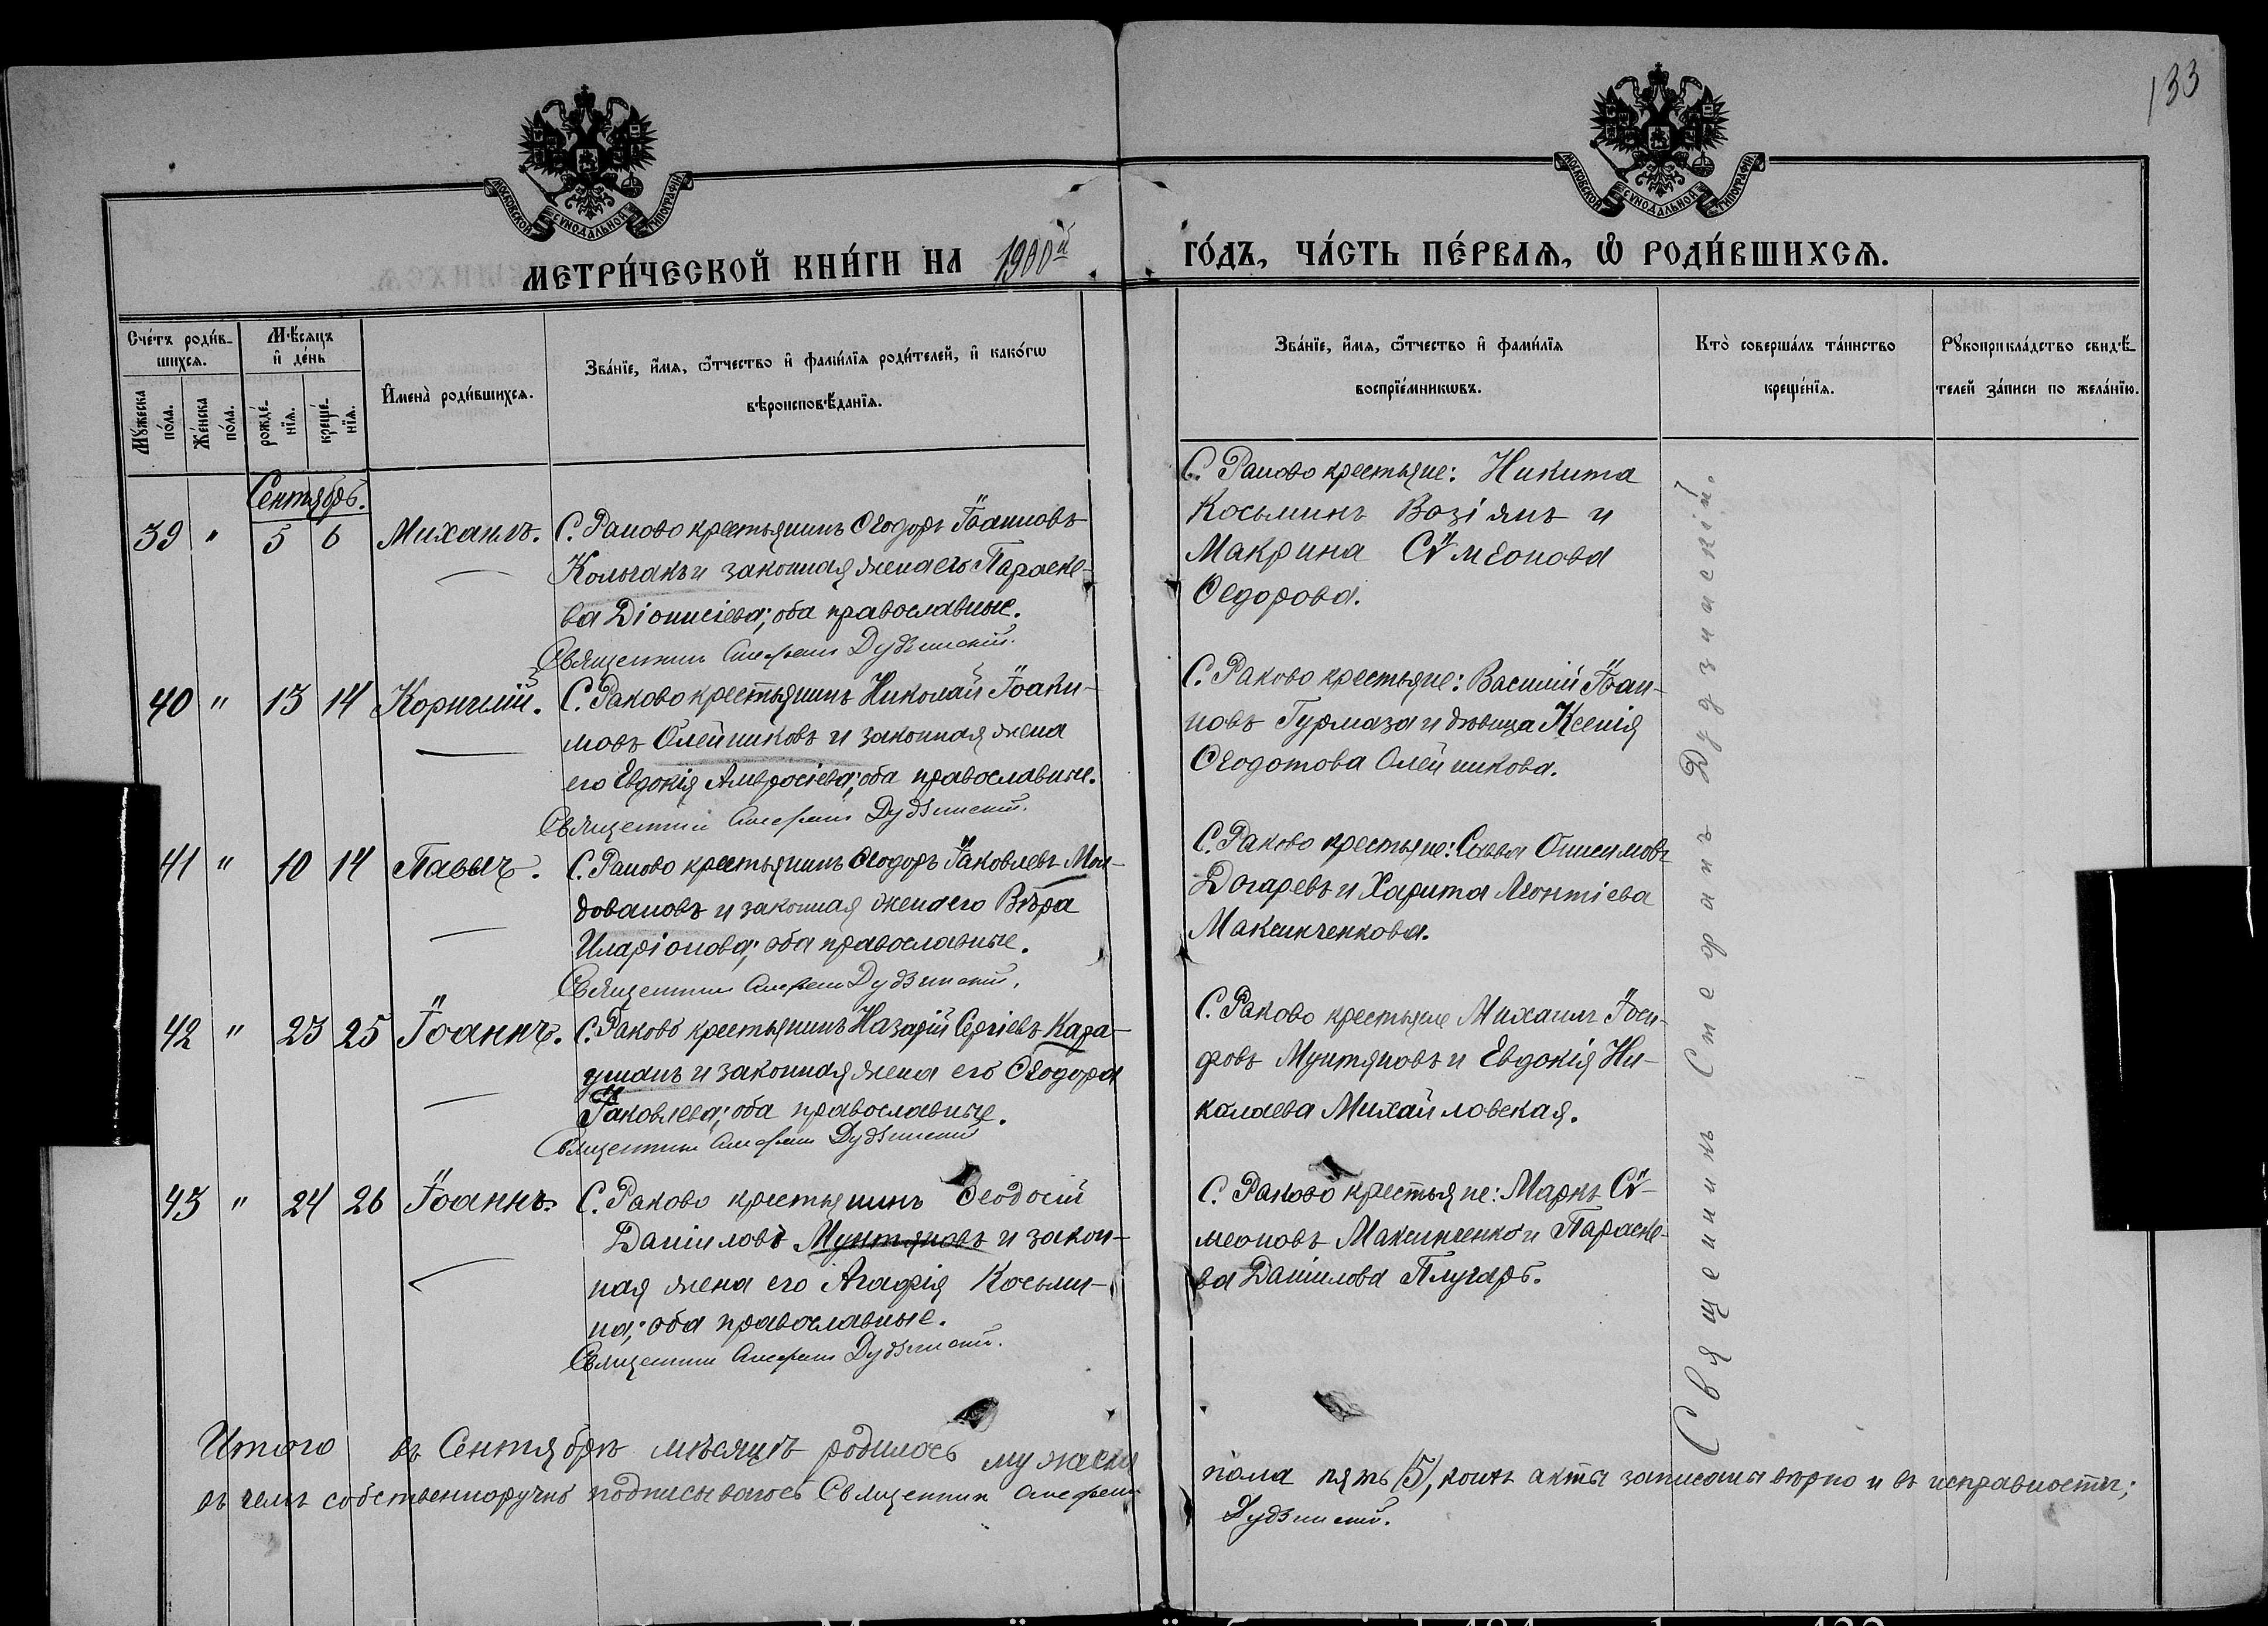 133
МОСКОВСКОЙ СУНОДАЛЬНОЙ ТИПОГРАФІИ
МОСКОВСКОЙ СУНОДАЛЬНОЙ ТИПОГРАФІИ
МЕТРИ́ЧЕСКОЙ КНИ́ГИ НА 1900й ГО́ДЪ, ЧА́СТЬ ПЕ́РВАѦ, Ѡ҆ РОДИ́ВШИХСѦ.
Сче́тъ роди́в-
шихсѧ.
Мꙋ́жеска
по́ла.
Же́нска
по́ла.
Мѣ́сѧцъ
и҆ де́нь
рожде́-
нїѧ.
креще́-
нїѧ.
И҆мена̀ роди́вшихсѧ.
Зва́нїе, и҆́мѧ, ѻ҆́тчество и҆ фами́лїѧ роди́телей, и҆ како́гѡ
вѣроисповѣ́данїѧ.
Зва́нїе, и҆́мѧ, ѻ҆́тчество и҆ фами́лїѧ
воспрїе́мникѡвъ.
Кто̀ соверша́лъ та́инство
креще́нїѧ.
Рꙋкоприкла́дство свидѣ́-
телей за́писи по жела́нїю.
Сентябрь.
39 " 5 6 Михаилъ.
С. Раково крестьянинъ Ѳеодоръ Іоанновъ
Колычакъ и законная жена его Параске-
ва Діонисіева; оба православные.
Священникъ Стефанъ Дудзинскій.
С. Раково крестьяне: Никита
Косьминъ Возіянъ и
Макрина Сѵмеонова
Ѳедорова.
40 " 13 14 Корнилій.
С. Раково крестьянинъ Николай Іоаки-
мовъ Олейниковъ и законная жена
его Евдокія Амвросіева; оба православные.
Священникъ Стефанъ Дудзинскій.
С. Раково крестьяне: Василій Іоан-
новъ Гурмаза и дѣвица Ксенія
Ѳеодотова Олейникова.
41 " 10 14 Павелъ.
С. Раково крестьянинъ Ѳеодоръ Іаковлевъ Мол-
довановъ и законная жена его Вѣра
Иларіонова; оба православные.
Священникъ Стефанъ Дудзинскій.
С. Раково крестьяне: Савва Онисимовъ
Догаревъ и Харита Леонтіева
Максимченкова.
42 " 23 25 Іоаннъ.
С. Раково крестьянинъ Назарій Сергіевъ Кара-
ушанъ и законная жена его Ѳеодора
Іаковлева; оба православные.
Священникъ Стефанъ Дудзинскій
С. Раково крестьяне Михаилъ Іоси-
фовъ Мунтяновъ и Евдокія Ни-
колаева Михайловская.
43 " 24 26 Іоаннъ.
С. Раково крестьянинъ Ѳеодосій
Даніиловъ Мунтяновъ и закон-
ная жена его Агафія Косьми-
на; оба православные.
Священникъ Стефанъ Дудзинскій.
С. Раково крестьяне: Маркъ Сѵ-
меоновъ Максимченко и Параске-
ва Даніилова Плугарь.
Священникъ Стефанъ Дудзинскій.
Итого въ Сентябрѣ мѣсяцѣ родилось мужеска пола пять /5/, коихъ акты записаны вѣрно и въ исправности;
въ чемъ собственноручно подписываюсь Священник Стефанъ Дудзинскій.